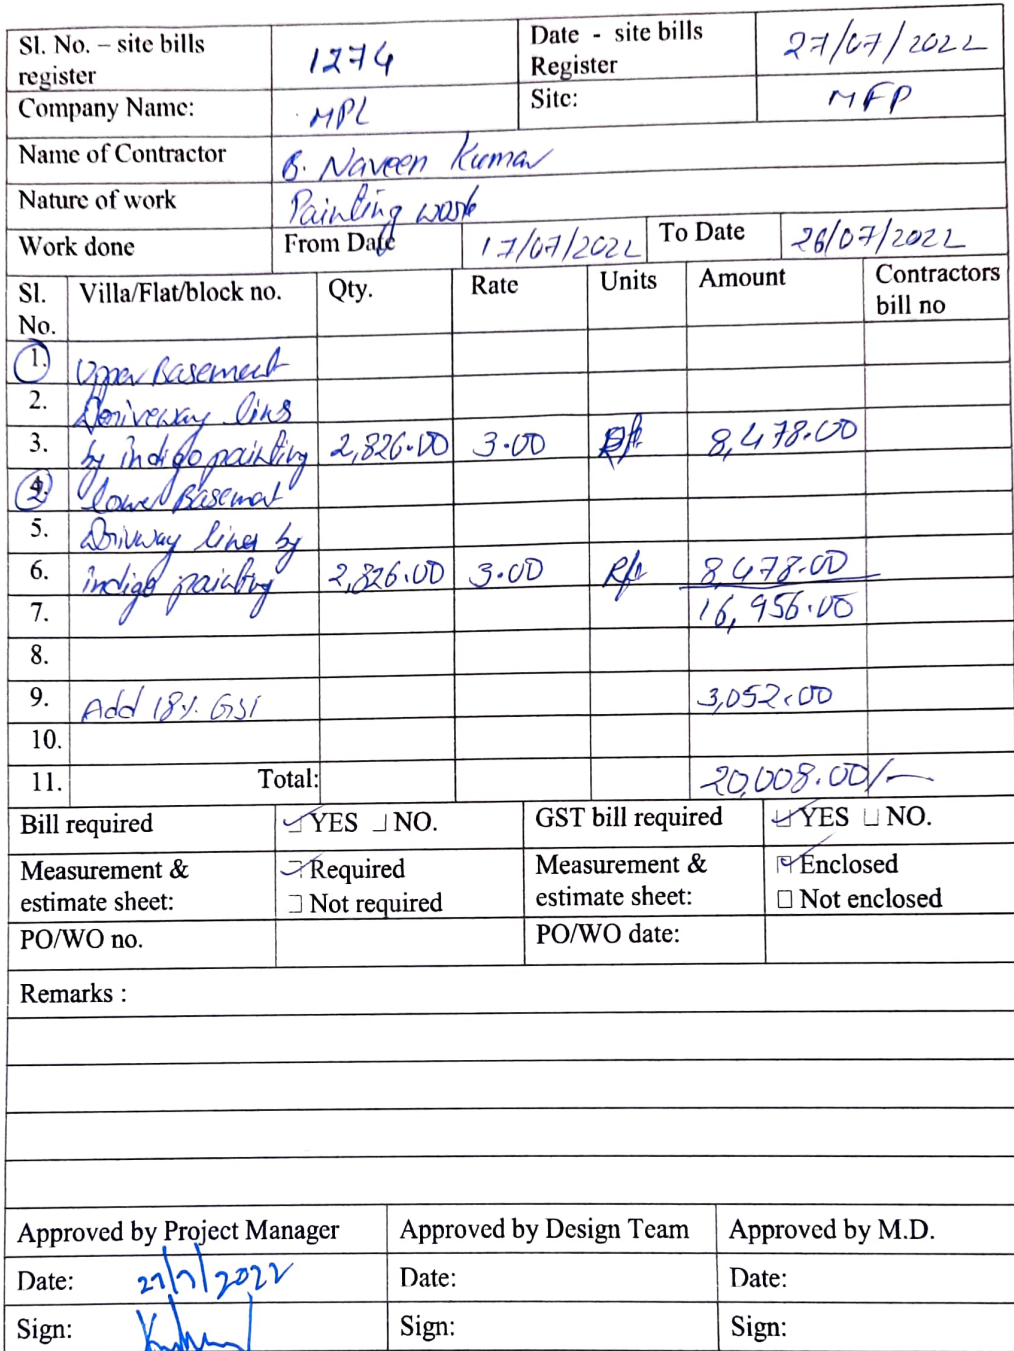 Sl. No. – site bills register 1274 Date - site bills Register 27/07/2022
Company Name: MPL Site: MFP
Name of Contractor B. Naveen Kumar
Nature of work Painting work
Work done From Date 17/07/2022 To Date 26/07/2022
Sl. No. Villa/Flat/block no. Qty. Rate Units Amount Contractors bill no
1. Upper Basement
2. Doriveway lins
3. by indigo painting 2,826.00 3.00 Rft 8,478.00
4. 2 lower Basemat
5. Dorivway lines by
6. indigo painting 2,826.00 3.00 Rft 8,478.00
7. 16,956.00
8.
9. Add 18% GST 3,052.00
10.
11. Total: 20,008.00/-
Bill required YES NO. GST bill required YES NO.
Measurement & estimate sheet: Required Measurement & estimate sheet: Enclosed
Not required Not enclosed
PO/WO no. PO/WO date:
Remarks :
Approved by Project Manager Approved by Design Team Approved by M.D.
Date: 27/7/2022 Date: Date:
Sign: Sign: Sign: